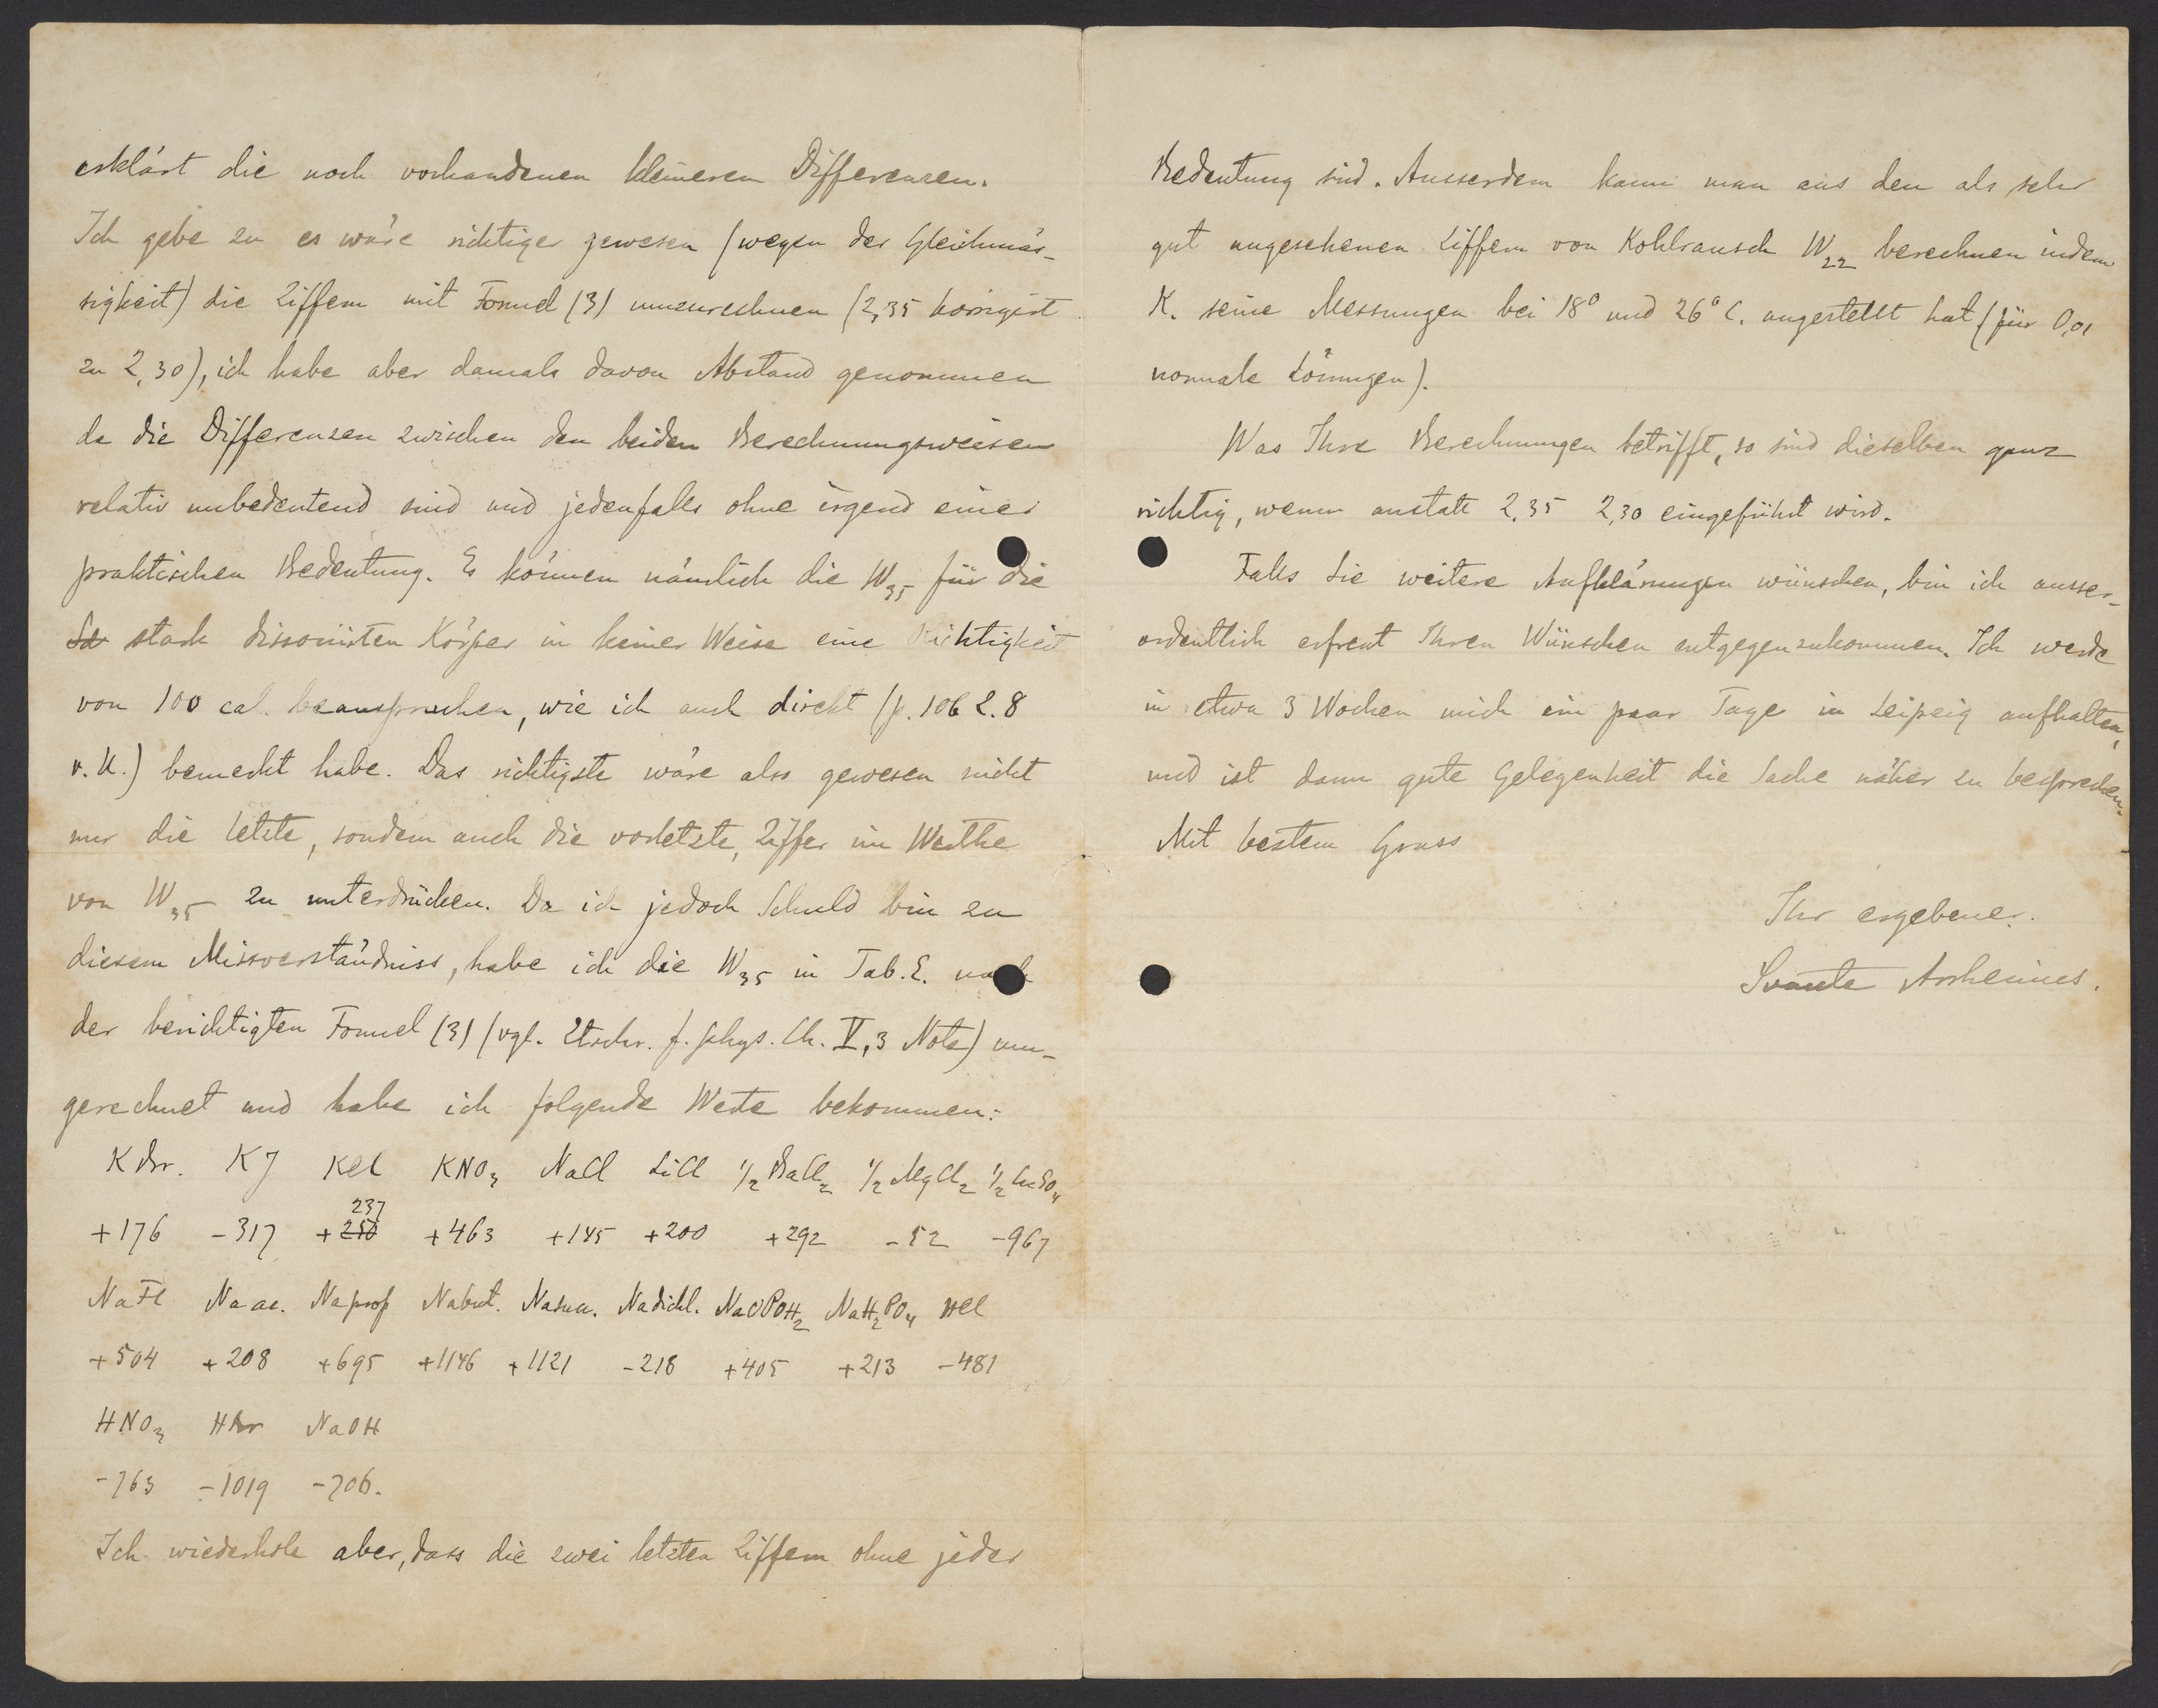 erklärt die noch vorhandenen kleineren Differenzen.
Ich gebe zu es wäre richtiger gewesen (wegen der Gleichmäs-
sigkeit) die Ziffern mit Formel (3) umzurechnen (2,35 korrigirt
zu 2,30), ich habe aber damals davon Abstand genommen
da die Differenzen zwischen den beiden Berechnungsweisen
relativ unbedeutend sind und jedenfalls ohne irgend einer
praktischen Bedeutung. Es können nämlich die W35 für die
stark dissociirten Körper in keiner Weise eine Richtigkeit
von 100 cal. beanspruchen, wie ich auch direkt (p. 106 Z. 8
v. U.) bemerkt habe. Das richtigste wäre also gewesen nicht
nur die letzte, sondern auch die vorletzte, Ziffer im Werthe
von W35 zu unterdrücken. Da ich jedoch Schuld bin zu
diesem Missverständniss, habe ich die W35 in Tab. E. nach
der berichtigten Formel (3) (vgl. Ztschr. f. phys. Ch. V, 3 Note) um-
gerechnet und habe ich folgende Werte bekommen:
KBr. KJ KCl KNO3 NaCl LiCl 1/2 BaCl2 1/2 MgCl2 1/2 CuSO4
237
+176 -317 +250 +463 +145 +200 +292 -52 -967
NaFl Naac. Naprop Nabut. Nasuc. Nadichl. NaOPOH2 NaH2PO4 HCl
+504 +208 +695 +1146 +1121 -218 +405 +213 -481
HNO3 HBr NaOH
-763 -1019 -706.
Ich wiederhole aber, dass die zwei letzten Ziffern ohne jeder
Bedeutung sind. Ausserdem kann man aus den als sehr
gut angesehenen Ziffern von Kohlrausch W22 berechnen indem
K. seine Messungen bei 18° und 26° C. angestellt hat (für 0,01
normale Lösungen).
Was Ihre Berechnungen betrifft, so sind dieselben ganz
richtig, wenn anstatt 2,35 2,30 eingeführt wird.
Falls Sie weitere Aufklärungen wünschen, bin ich ausser-
ordentlich erfreut Ihren Wünschen entgegenzukommen. Ich werde
in etwa 3 Wochen mich ein paar Tage in Leipzig aufhalten,
und ist dann gute Gelegenheit die Sache näher zu besprechen.
Mit bestem Gruss
Ihr ergebener.
Svante Arrhenius.